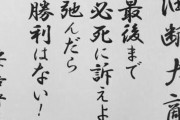 油断大敵
最後まで
必死に訴えよ
弛んだら
勝利はない！